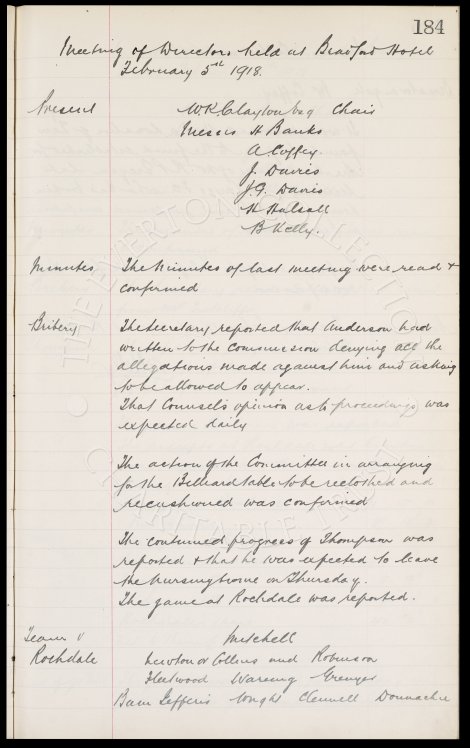 184
Meeting of Directors held at Bradford Hotel
February 5th 1918.
Present W R Clayton Esq Chair
Messrs H Banks
A Coffey.
J. Davies
J.G. Davis
H Halsall
B Kelly.
Minutes The Minutes of last meeting were read &
confirmed
Bribery The Secretary reported that Anderson had
written to the Commission denying all the
allegations made against him and asking
to be allowed to appear.
That Counsel's opinion as to proceedings was
expected daily
The action of the Committee in arranging
for the Billiard table to be reclothed and
recushioned was confirmed
The continued progress of Thompson was
reported & that he was expected to leave
the nursing home on Thursday.
The game at Rochdale was reported.
Team v Mitchell
Rochdale Newton or Collins and Robinson
Fleetwood Wareing Grenyer
Bam Jefferis Wright Clennell Donnachie
© THE EVERTON COLLECTION
CHARITABLE TRUST